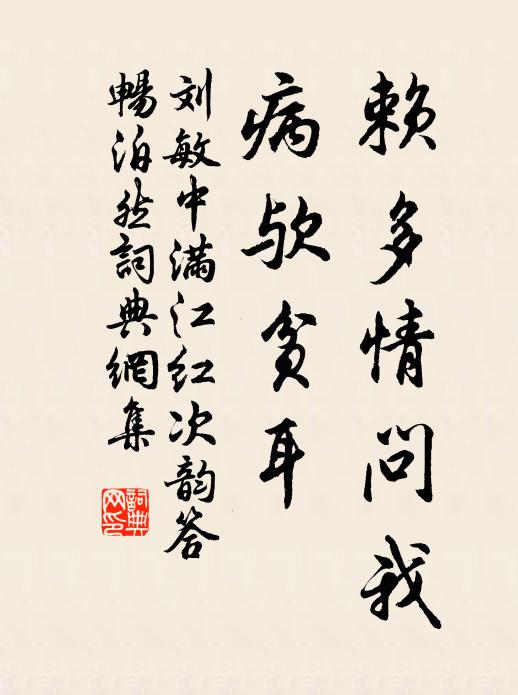 赖多情问我
病欤贫耳
刘敏中满江红次韵答
暢泊然詞典網集
詞典网印